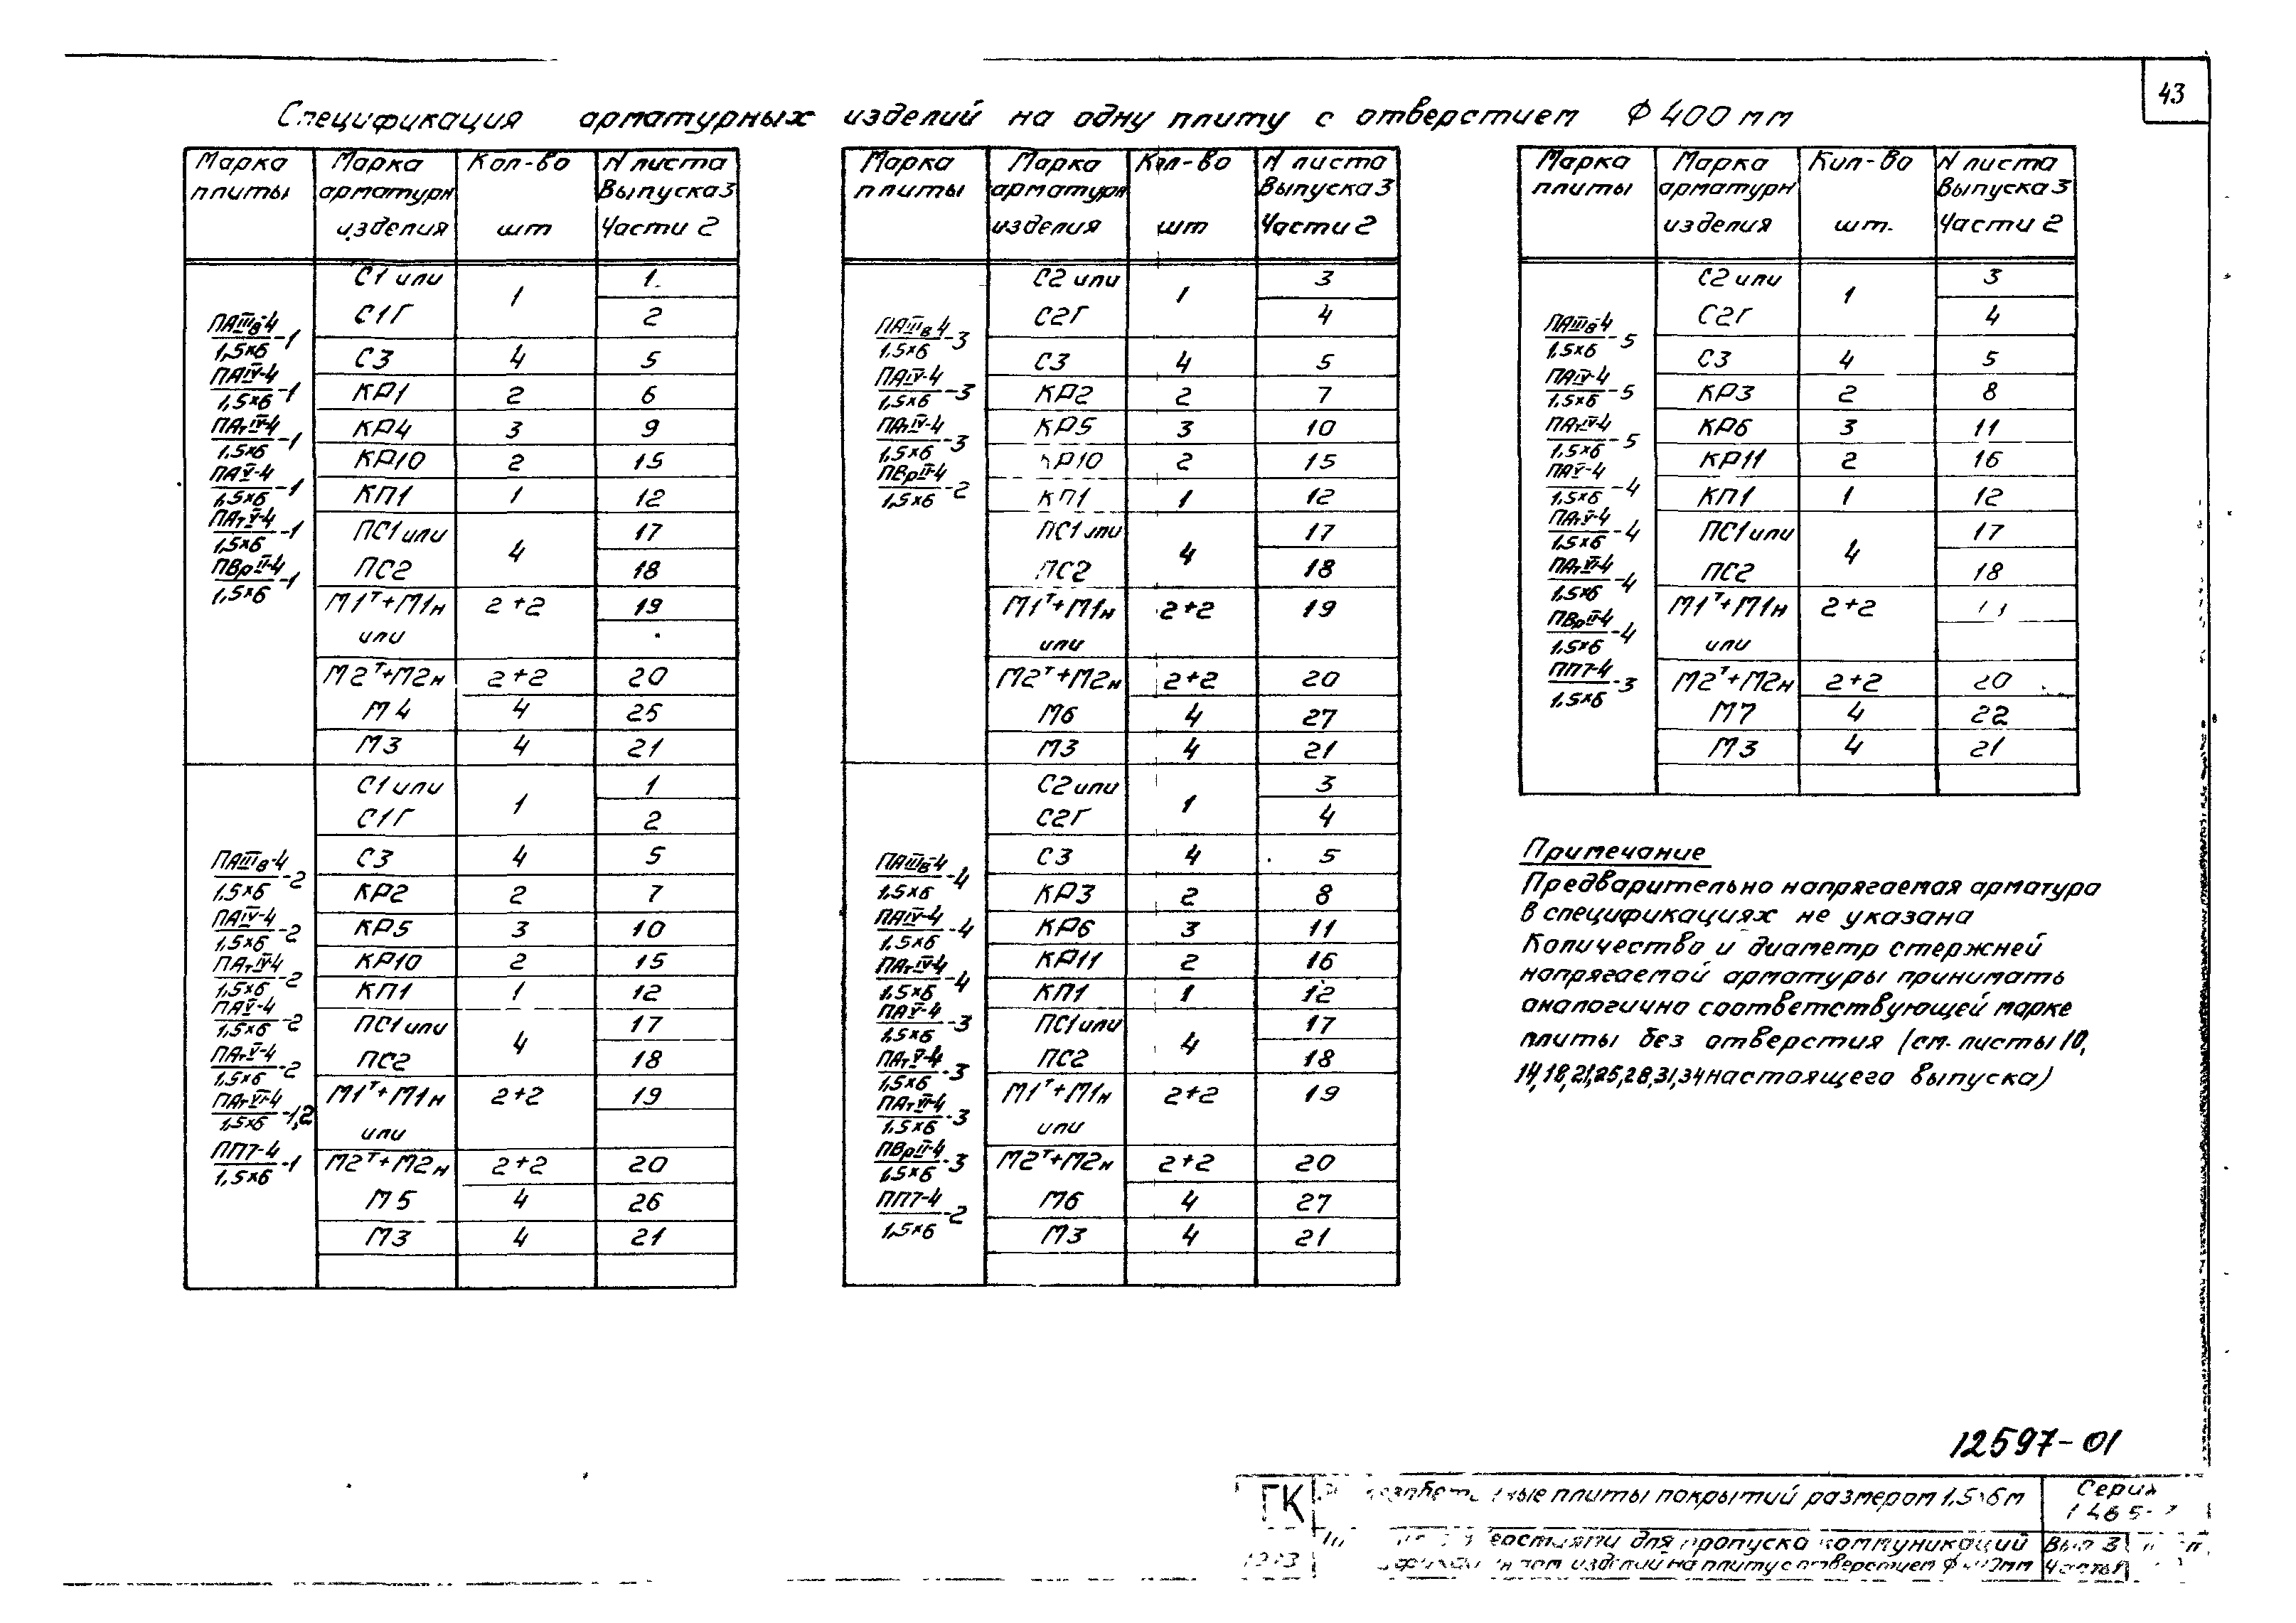 43
Спецификация арматурных изделий на одну плиту с отверстием Ф 400 мм
Марка плиты | Марка арматурн изделия | Кол-во шт | N листа Выпуска 3 Части 2
ПАIIIв-4/1,5×6 -1
ПАIV-4/1,5×6 -1
ПАтIV-4/1,5×6 -1
ПАV-4/1,5×6 -1
ПАтV-4/1,5×6 -1
ПВрII-4/1,5×6 -1
С1 или | 1 | 1
С1Г | 2
С3 | 4 | 5
КР1 | 2 | 6
КР4 | 3 | 9
КР10 | 2 | 15
КП1 | 1 | 12
ПС1 или | 4 | 17
ПС2 | 18
М1т+М1н | 2+2 | 19
или
М2т+М2н | 2+2 | 20
М4 | 4 | 25
М3 | 4 | 21
ПАIIIв-4/1,5×6 -2
ПАIV-4/1,5×6 -2
ПАтIV-4/1,5×6 -2
ПАV-4/1,5×6 -2
ПАтV-4/1,5×6 -2
ПАтVI-4/1,5×6 -1,2
ПП7-4/1,5×6 -1
С1 или | 1 | 1
С1Г | 2
С3 | 4 | 5
КР2 | 2 | 7
КР5 | 3 | 10
КР10 | 2 | 15
КП1 | 1 | 12
ПС1 или | 4 | 17
ПС2 | 18
М1т+М1н | 2+2 | 19
или
М2т+М2н | 2+2 | 20
М5 | 4 | 26
М3 | 4 | 21
Марка плиты | Марка арматурн изделия | Кол-во шт | N листа Выпуска 3 Части 2
ПАIIIв-4/1,5×6 -3
ПАIV-4/1,5×6 -3
ПАтIV-4/1,5×6 -3
ПВрII-4/1,5×6 -2
С2 или | 1 | 3
С2Г | 4
С3 | 4 | 5
КР2 | 2 | 7
КР5 | 3 | 10
КР10 | 2 | 15
КП1 | 1 | 12
ПС1 или | 4 | 17
ПС2 | 18
М1т+М1н | 2+2 | 19
или
М2т+М2н | 2+2 | 20
М6 | 4 | 27
М3 | 4 | 21
ПАIIIв-4/1,5×6 -4
ПАIV-4/1,5×6 -4
ПАтIV-4/1,5×6 -4
ПАV-4/1,5×6 -3
ПАтV-4/1,5×6 -3
ПАтVI-4/1,5×6 -3
ПВрII-4/1,5×6 -3
ПП7-4/1,5×6 -2
С2 или | 1 | 3
С2Г | 4
С3 | 4 | 5
КР3 | 2 | 8
КР6 | 3 | 11
КР11 | 2 | 16
КП1 | 1 | 12
ПС1 или | 4 | 17
ПС2 | 18
М1т+М1н | 2+2 | 19
или
М2т+М2н | 2+2 | 20
М6 | 4 | 27
М3 | 4 | 21
Марка плиты | Марка арматурн изделия | Кол-во шт. | N листа Выпуска 3 Части 2
ПАIIIв-4/1,5×6 -5
ПАIV-4/1,5×6 -5
ПАтIV-4/1,5×6 -5
ПАV-4/1,5×6 -4
ПАтV-4/1,5×6 -4
ПАтVI-4/1,5×6 -4
ПВрII-4/1,5×6 -4
ПП7-4/1,5×6 -3
С2 или | 1 | 3
С2Г | 4
С3 | 4 | 5
КР3 | 2 | 8
КР6 | 3 | 11
КР11 | 2 | 16
КП1 | 1 | 12
ПС1 или | 4 | 17
ПС2 | 18
М1т+М1н | 2+2
или
М2т+М2н | 2+2 | 20
М7 | 4 | 22
М3 | 4 | 21
Примечание
Предварительно напрягаемая арматура
в спецификациях не указана
Количество и диаметр стержней
напрягаемой арматуры принимать
аналогично соответствующей марке
плиты без отверстия (см. листы 10,
14,18,21,25,28,31,34 настоящего выпуска)
12597-01
ГК
плиты покрытий размером 1,5×6м
Серия
для пропуска коммуникаций
Вып 3
изделий на плиту с отверстием Ф
Часть 1